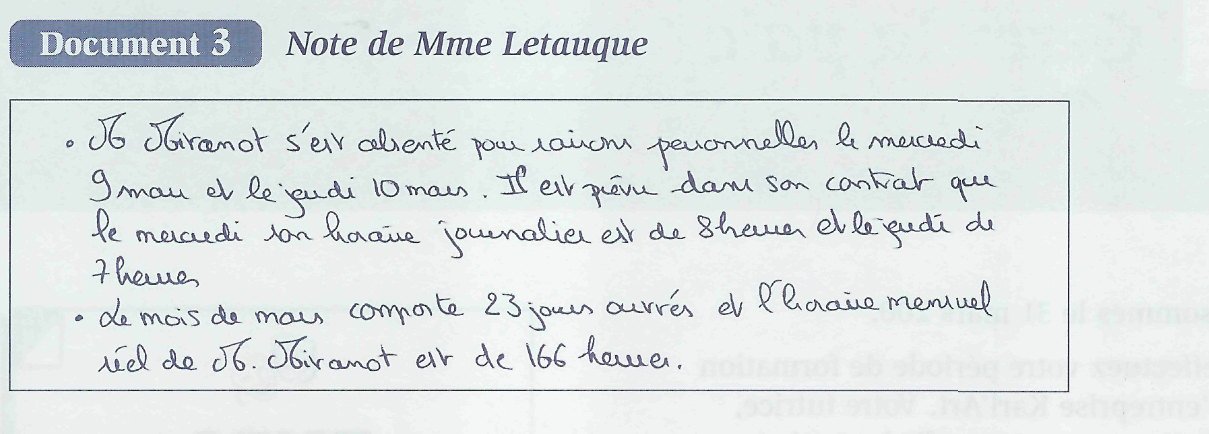 Document 3 Note de Mme Letauque
• M Miranot s'est absenté pour raisons personnelles le mercredi
9 mars et le jeudi 10 mars. Il est prévu dans son contrat que
le mercredi son horaire journalier est de 8 heures et le jeudi de
7 heures
• Le mois de mars comporte 23 jours ouvrés et l'horaire mensuel
réel de M. Miranot est de 166 heures.